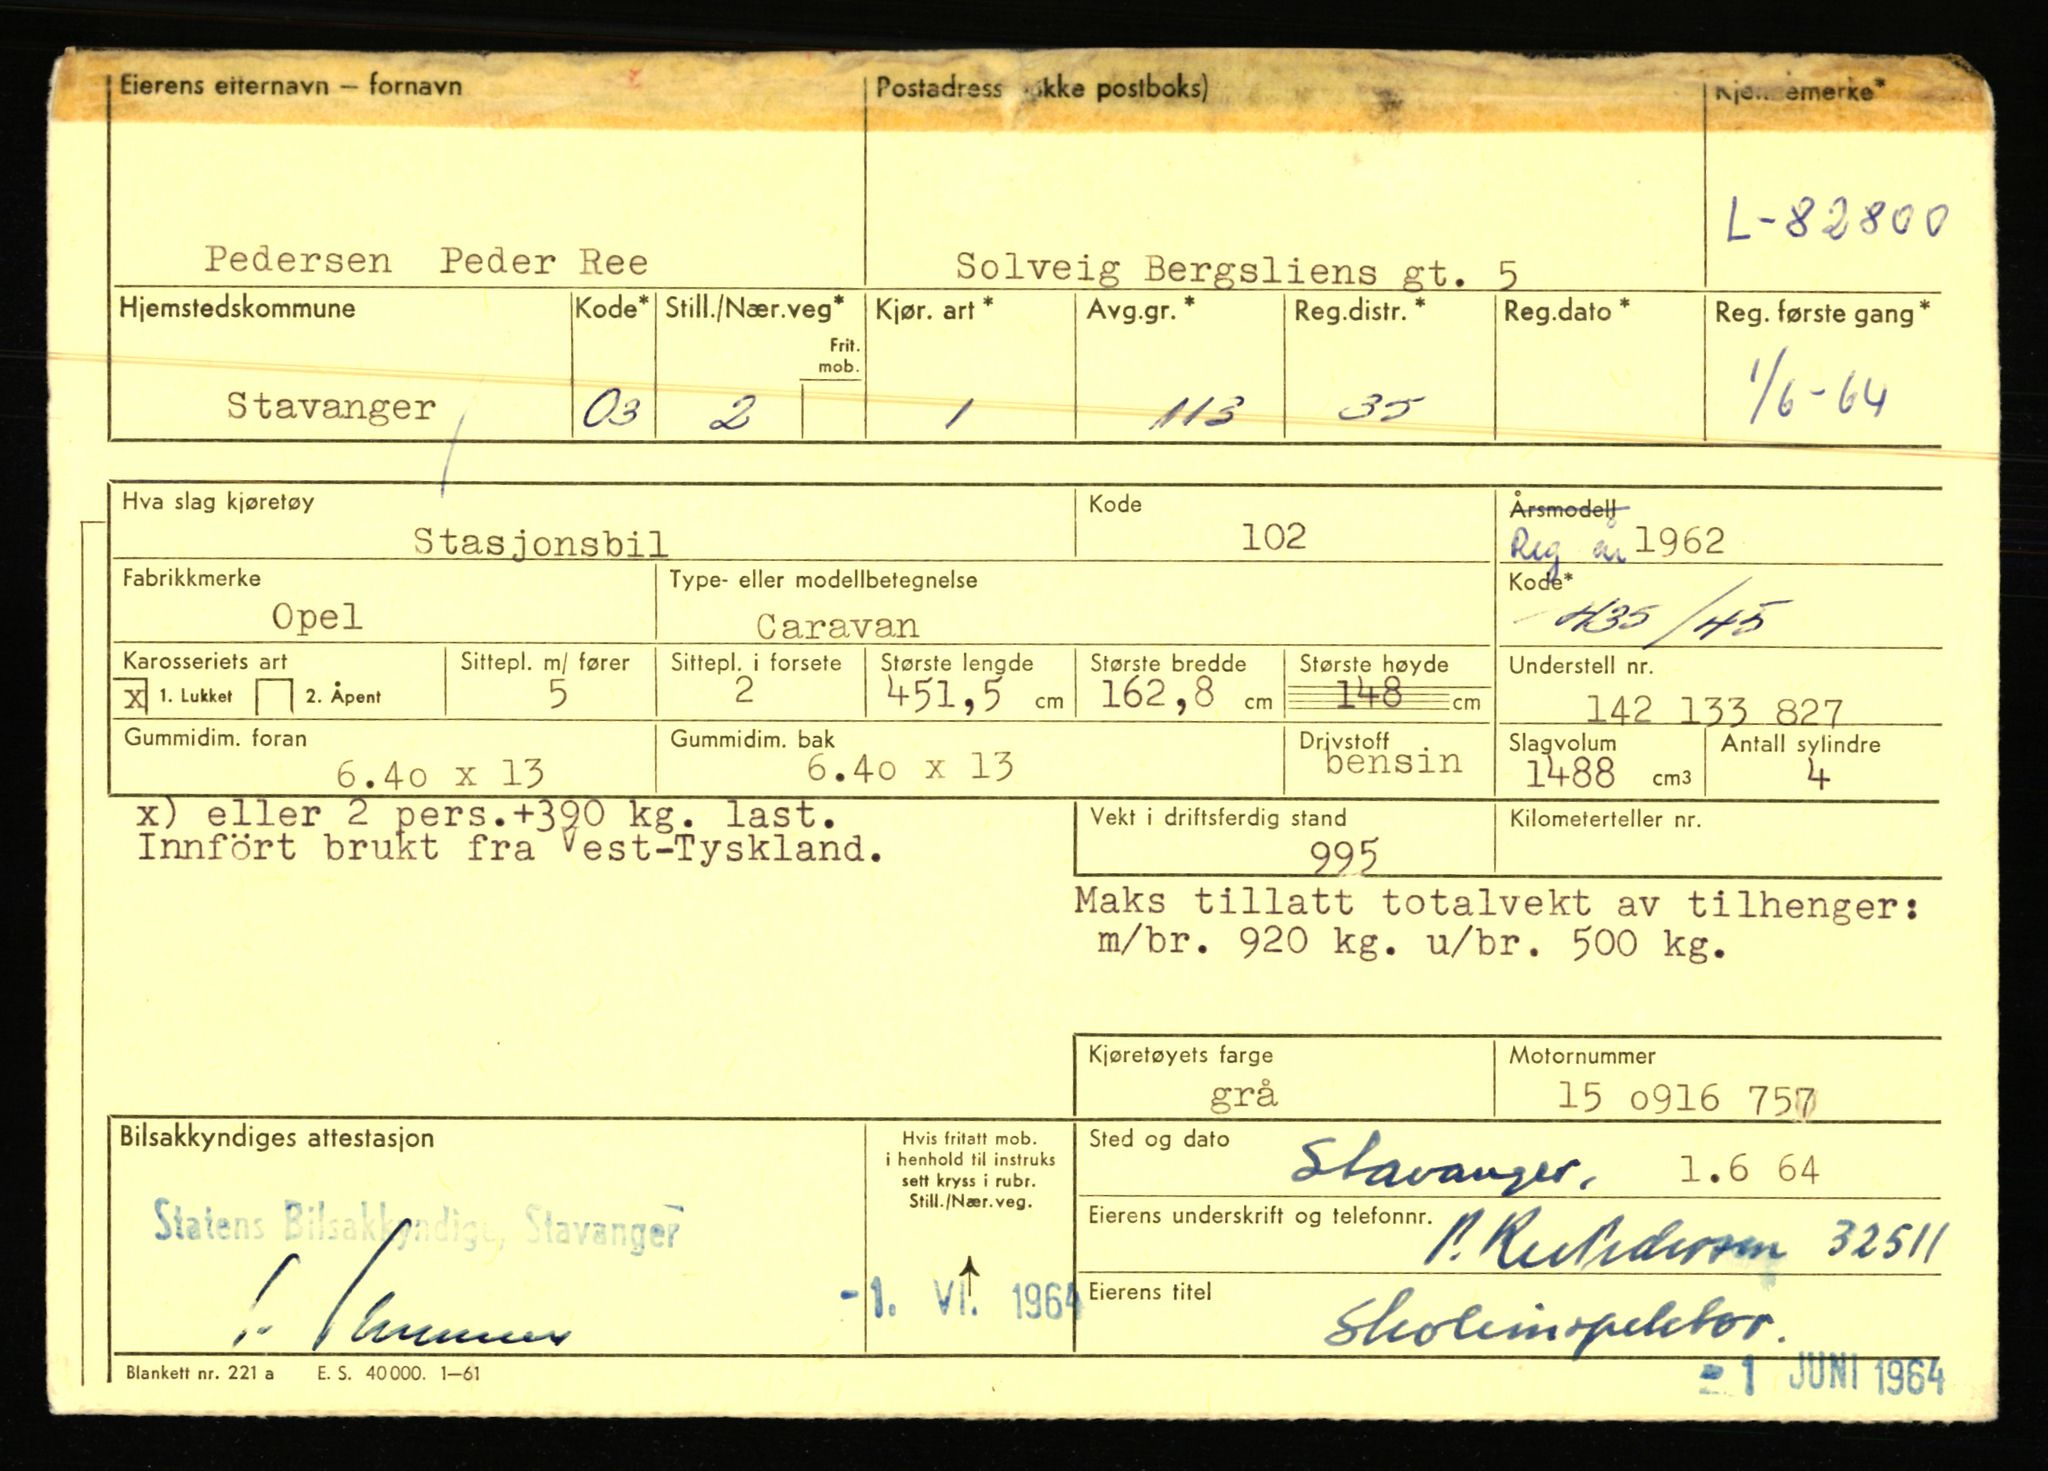 Eierens etternavn – fornavn
Postadress ikke postboks)
Kjennemerke*
L-82800
Pedersen Peder Ree
Solveig Bergsliens gt. 5
Hjemstedskommune
Kode*
Still./Nær.veg*
Frit.
mob.
Kjør. art*
Avg.gr.*
Reg.distr.*
Reg.dato*
Reg. første gang*
Stavanger
03
2
1
113
35
1/6-64
Hva slag kjøretøy
Stasjonsbil
Kode
102
Årsmodell
Reg år 1962
Fabrikkmerke
Opel
Type- eller modellbetegnelse
Caravan
Kode*
435/45
Karosseriets art
x 1. Lukket 2. Åpent
Sittepl. m/ fører
5
Sittepl. i forsete
2
Største lengde
451,5 cm
Største bredde
162,8 cm
Største høyde
148 cm
Understell nr.
142 133 827
Gummidim. foran
6.40 x 13
Gummidim. bak
6.40 x 13
Drivstoff
bensin
Slagvolum
1488 cm3
Antall sylindre
4
x) eller 2 pers.+390 kg. last.
Innfört brukt fra Vest-Tyskland.
Vekt i driftsferdig stand
995
Kilometerteller nr.
Maks tillatt totalvekt av tilhenger:
m/br. 920 kg. u/br. 500 kg.
Kjøretøyets farge
grå
Motornummer
15 0916 757
Bilsakkyndiges attestasjon
Statens Bilsakkyndige, Stavanger
Hvis fritatt mob.
i henhold til instruks
sett kryss i rubr.
Still./Nær.veg.
-1. VI. 1964
Sted og dato
Stavanger, 1.6 64
Eierens underskrift og telefonnr.
P. Ree Pedersen 32511
Eierens titel
Skoleinspektør.
Blankett nr. 221 a E. S. 40 000. 1–61
-1 JUNI 1964